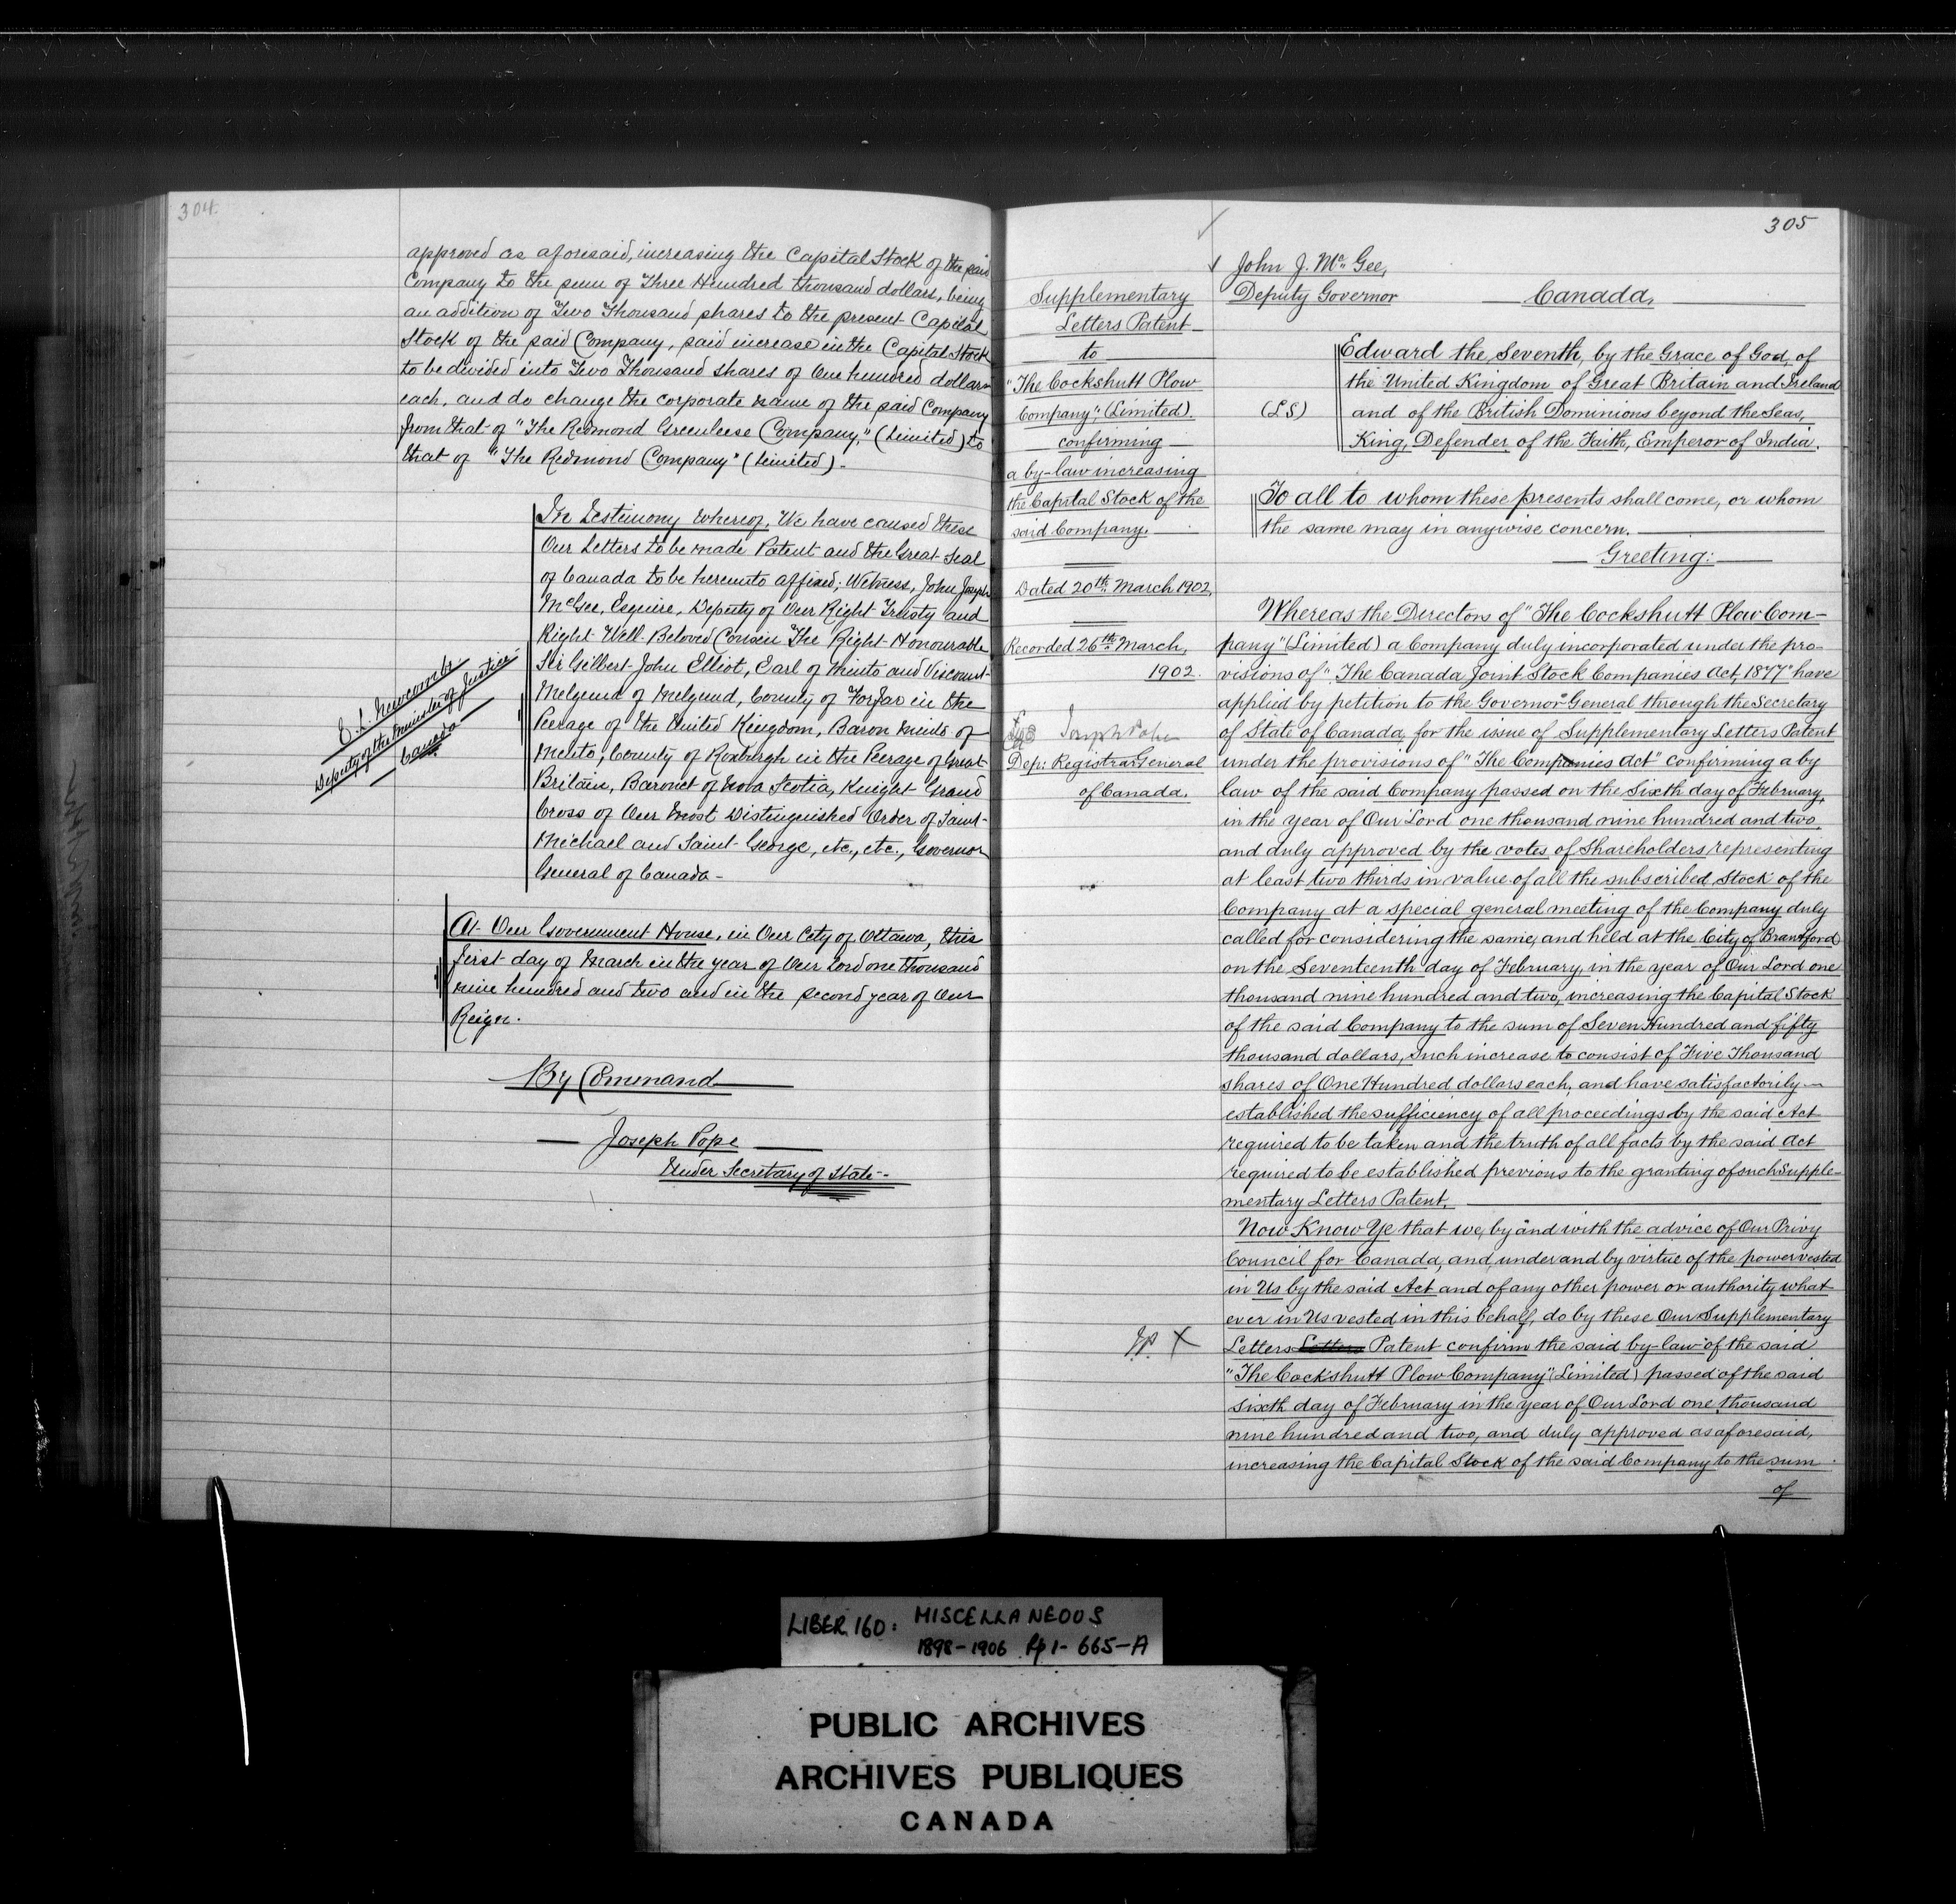 304.
approved as aforesaid, increasing the Capital Stock of the said
Company to the sum of Three Hundred thousand dollars, being
an addition of Two Thousand shares to the present Capital
Stock of the said Company, said increase in the Capital Stock
to be divided into Two Thousand shares of One hundred dollars
each, and do change the corporate name of the said Company
from that of "The Redmond Greenleese Company," (Limited) to
that of "The Redmond Company" (Limited).
In Testimony Whereof, We have caused these
Our Letters to be made Patent and the Great Seal
of Canada to be hereunto affixed; Witness, John Joseph
McGee, Esquire, Deputy of Our Right Trusty and
Right Well-Beloved Cousin The Right Honourable
Sir Gilbert John Elliot, Earl of Minto and Viscount
Melgund of Melgund, County of Forfar in the
Peerage of the United Kingdom, Baron Minto of
Minto, County of Roxburgh in the Peerage of Great
Britain, Baronet of Nova Scotia, Knight Grand
Cross of Our Most Distinguished Order of Saint
Michael and Saint George, etc., etc., Governor
General of Canada-
E. L. Newcombe
Deputy of the Minister of Justice
Canada
At Our Government House, in Our City of Ottawa, this
first day of March in the year of Our Lord one thousand
nine hundred and two and in the second year of Our
Reign.
By Command
Joseph Pope
Under Secretary of State
305
Supplementary
Letters Patent
to
"The Cockshutt Plow
Company" (Limited).
confirming
a by-law increasing
the Capital Stock of the
said Company.
Dated 20th March 1902,
Recorded 26th March,
1902.
Joseph Pope
Dep: Registrar General
of Canada.
John J. McGee,
Deputy Governor
Canada,
(LS)
Edward the Seventh, by the Grace of God, of
the United Kingdom of Great Britain and Ireland
and of the British Dominions beyond the Seas,
King, Defender of the Faith, Emperor of India.
To all to whom these presents shall come, or whom
the same may in anywise concern.
Greeting:
Whereas the Directors of "The Cockshutt Plow Com-
pany" (Limited) a Company duly incorporated under the pro-
visions of "The Canada Joint Stock Companies Act, 1877" have
applied by petition to the Governor General through the Secretary
of State of Canada, for the issue of Supplementary Letters Patent
under the provisions of "The Companies Act" confirming a by
law of the said Company passed on the Sixth day of February,
in the year of Our Lord one thousand nine hundred and two,
and duly approved by the votes of Shareholders representing
at least two thirds in value of all the subscribed Stock of the
Company at a special general meeting of the Company duly
called for considering the same, and held at the City of Brantford
on the Seventeenth day of February, in the year of Our Lord one
thousand nine hundred and two, increasing the Capital Stock
of the said Company to the sum of Seven Hundred and fifty
thousand dollars, such increase to consist of Five Thousand
shares of One Hundred dollars each, and have satisfactorily
established the sufficiency of all proceedings by the said Act
required to be taken and the truth of all facts by the said Act
required to be established previous to the granting of such Supple-
mentary Letters Patent.
Now Know Ye that we, by and with the advice of Our Privy
Council for Canada, and under and by virtue of the power vested
in Us by the said Act and of any other power or authority what-
ever in Us vested in this behalf, do by these Our Supplementary
X Letters Letters Patent confirm the said by-law of the said
"The Cockshutt Plow Company" (Limited) passed of the said
sixth day of February in the year of Our Lord one thousand
nine hundred and two, and duly approved as aforesaid,
increasing the Capital Stock of the said Company to the sum
of
LIBER 160: MISCELLANEOUS
1898-1906 Pp 1-665-A
PUBLIC ARCHIVES
ARCHIVES PUBLIQUES
CANADA